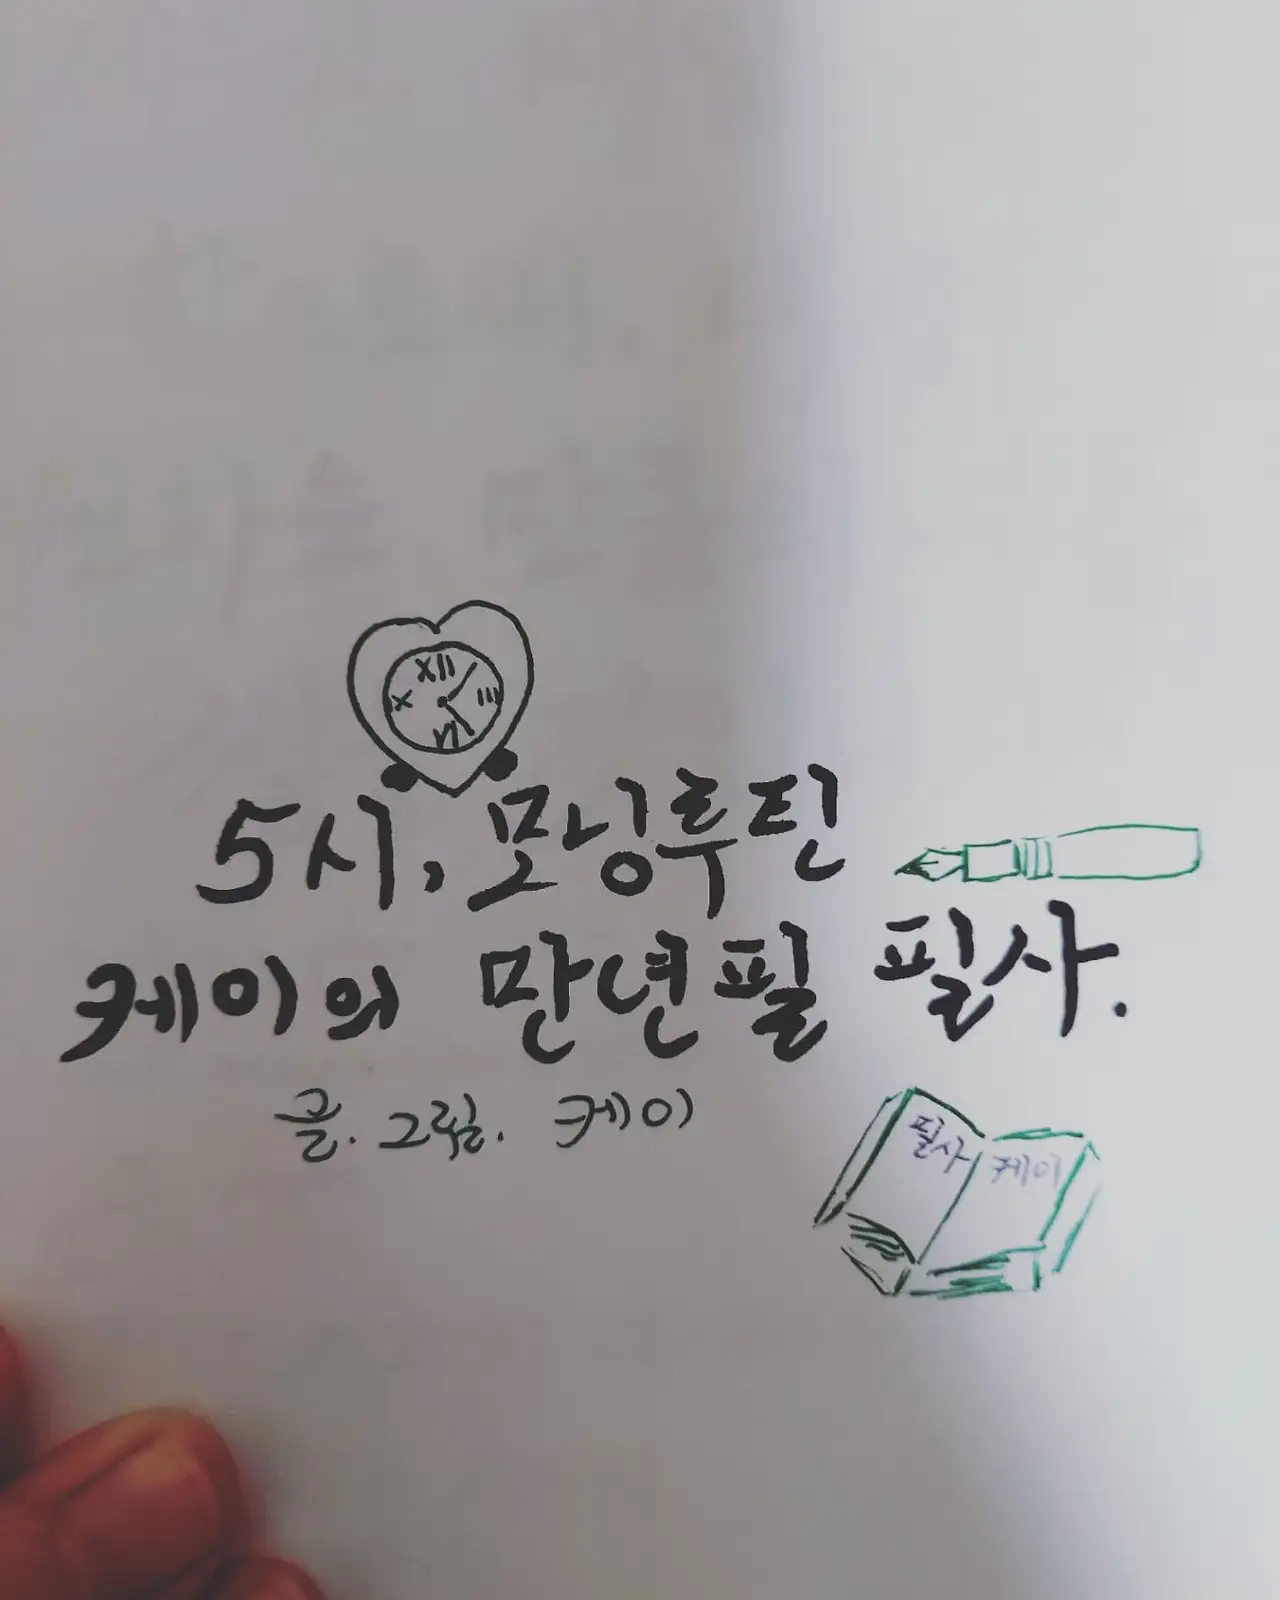 XII
III
VI
IX
5시, 모닝루틴
케이의 만년필 필사.
글. 그림. 케이
필사 케이